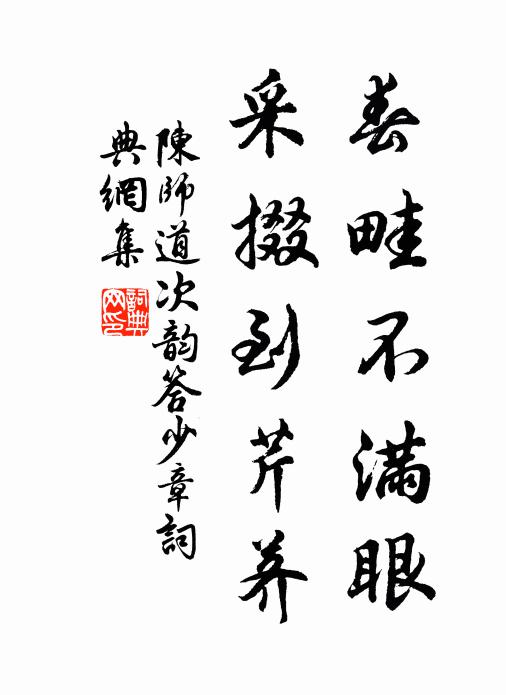 春畦不滿眼
采掇到芹荠
陳師道次韵答少章詞
典網集
詞典
网印